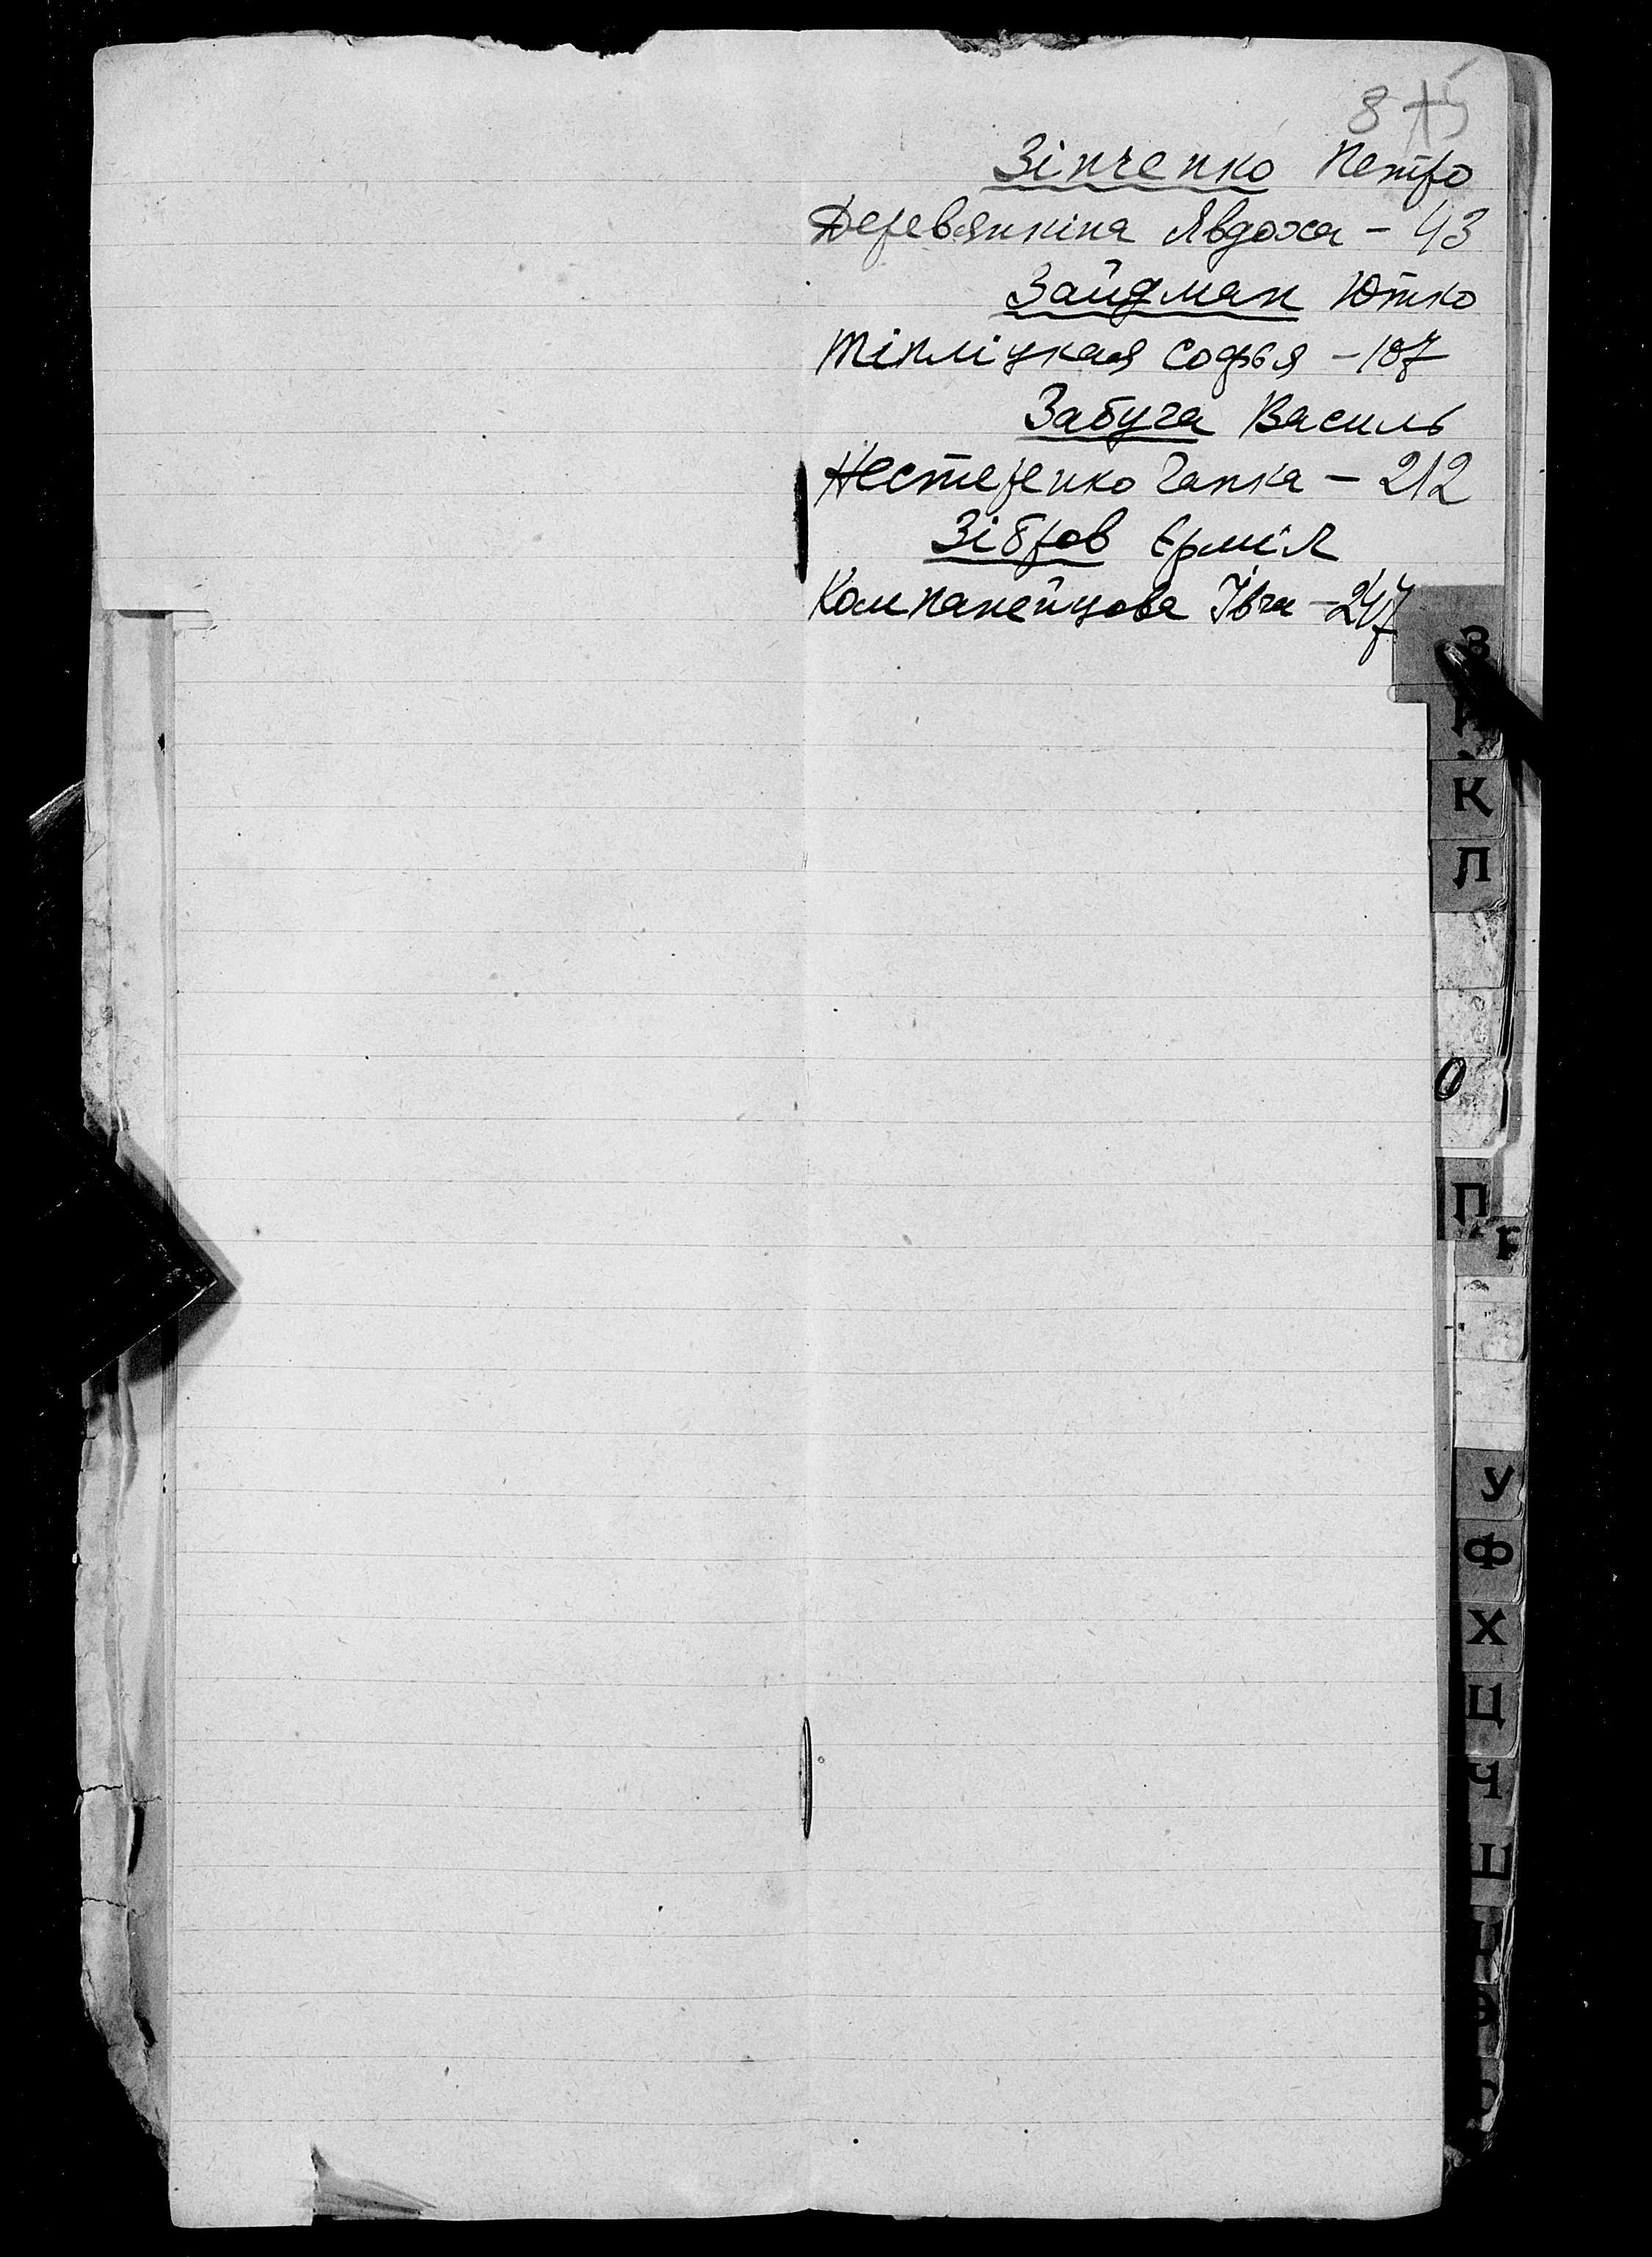 8
Зінченко Петро
Деревянкіна Явдоха - 43
Зайдман Ютко
Тіпліцкая Софья - 107
Забуга Василь
Нестеренко Ганка - 212
Зібров Єрміл
Компанейцова Ївга - 247
З
К
Л
О
П
У
Ф
Х
Ц
Ч